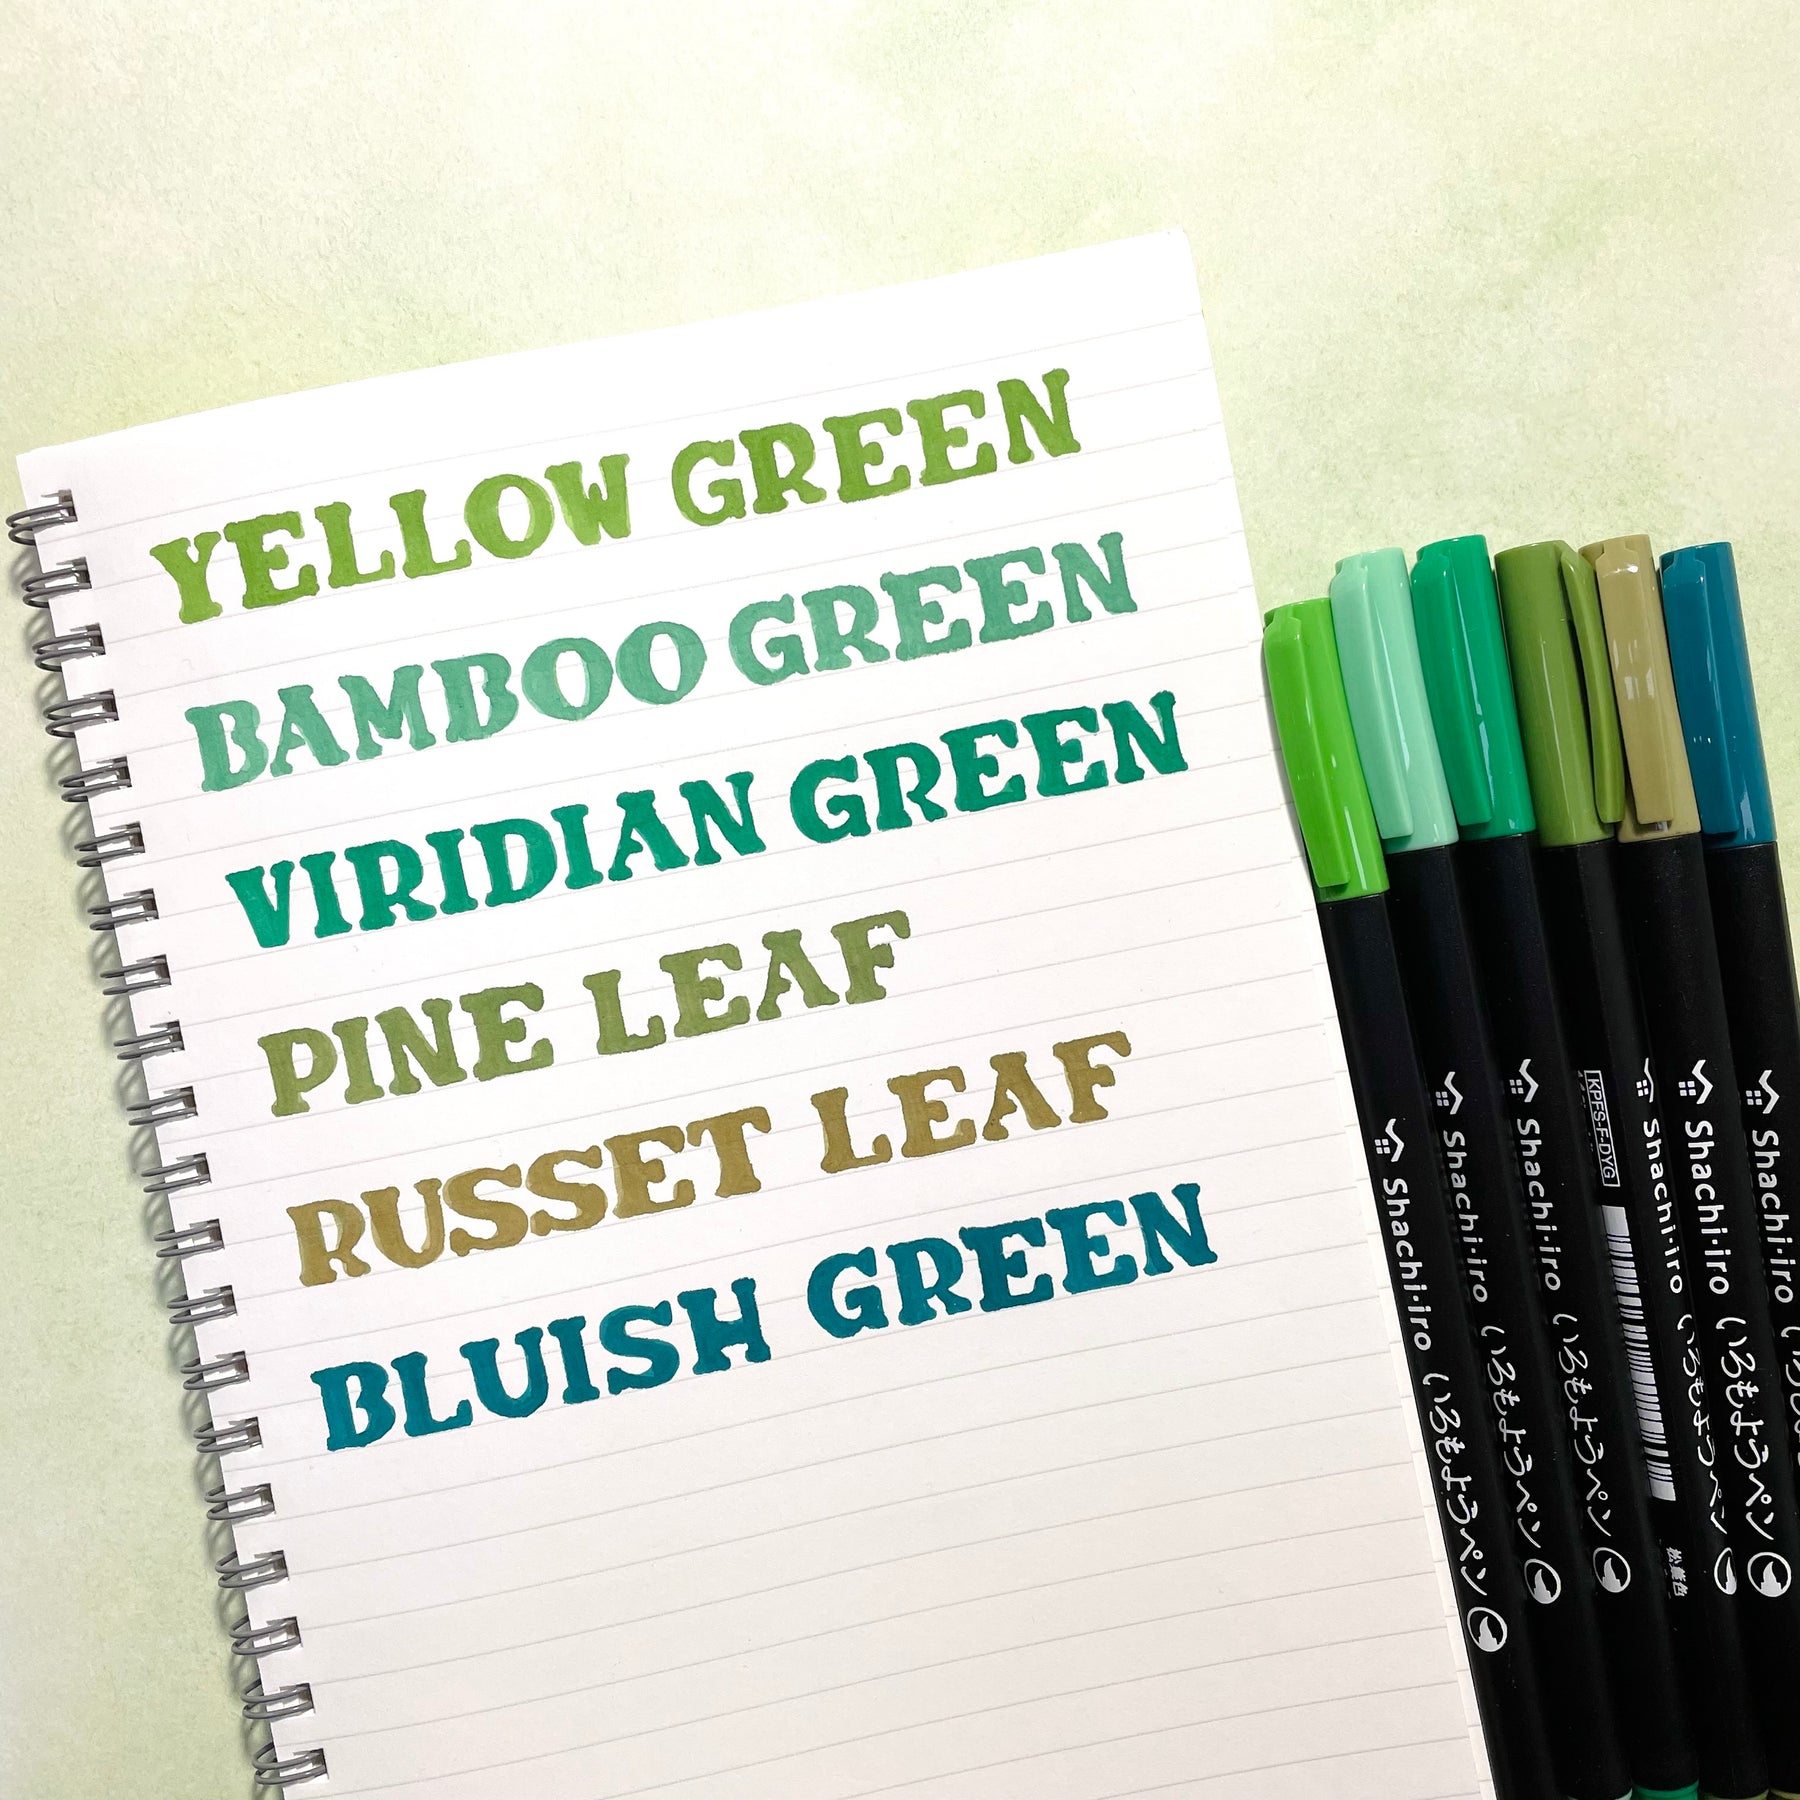 YELLOW GREEN
BAMBOO GREEN
VIRIDIAN GREEN
PINE LEAF
RUSSET LEAF
BLUISH GREEN
Shachi·iro いろもようペン
Shachi·iro いろもようペン
Shachi·iro いろもようペン
KPFS-F-DYG
松葉色
Shachi·iro いろもようペン
Shachi·iro いろもようペン
Shachi·iro